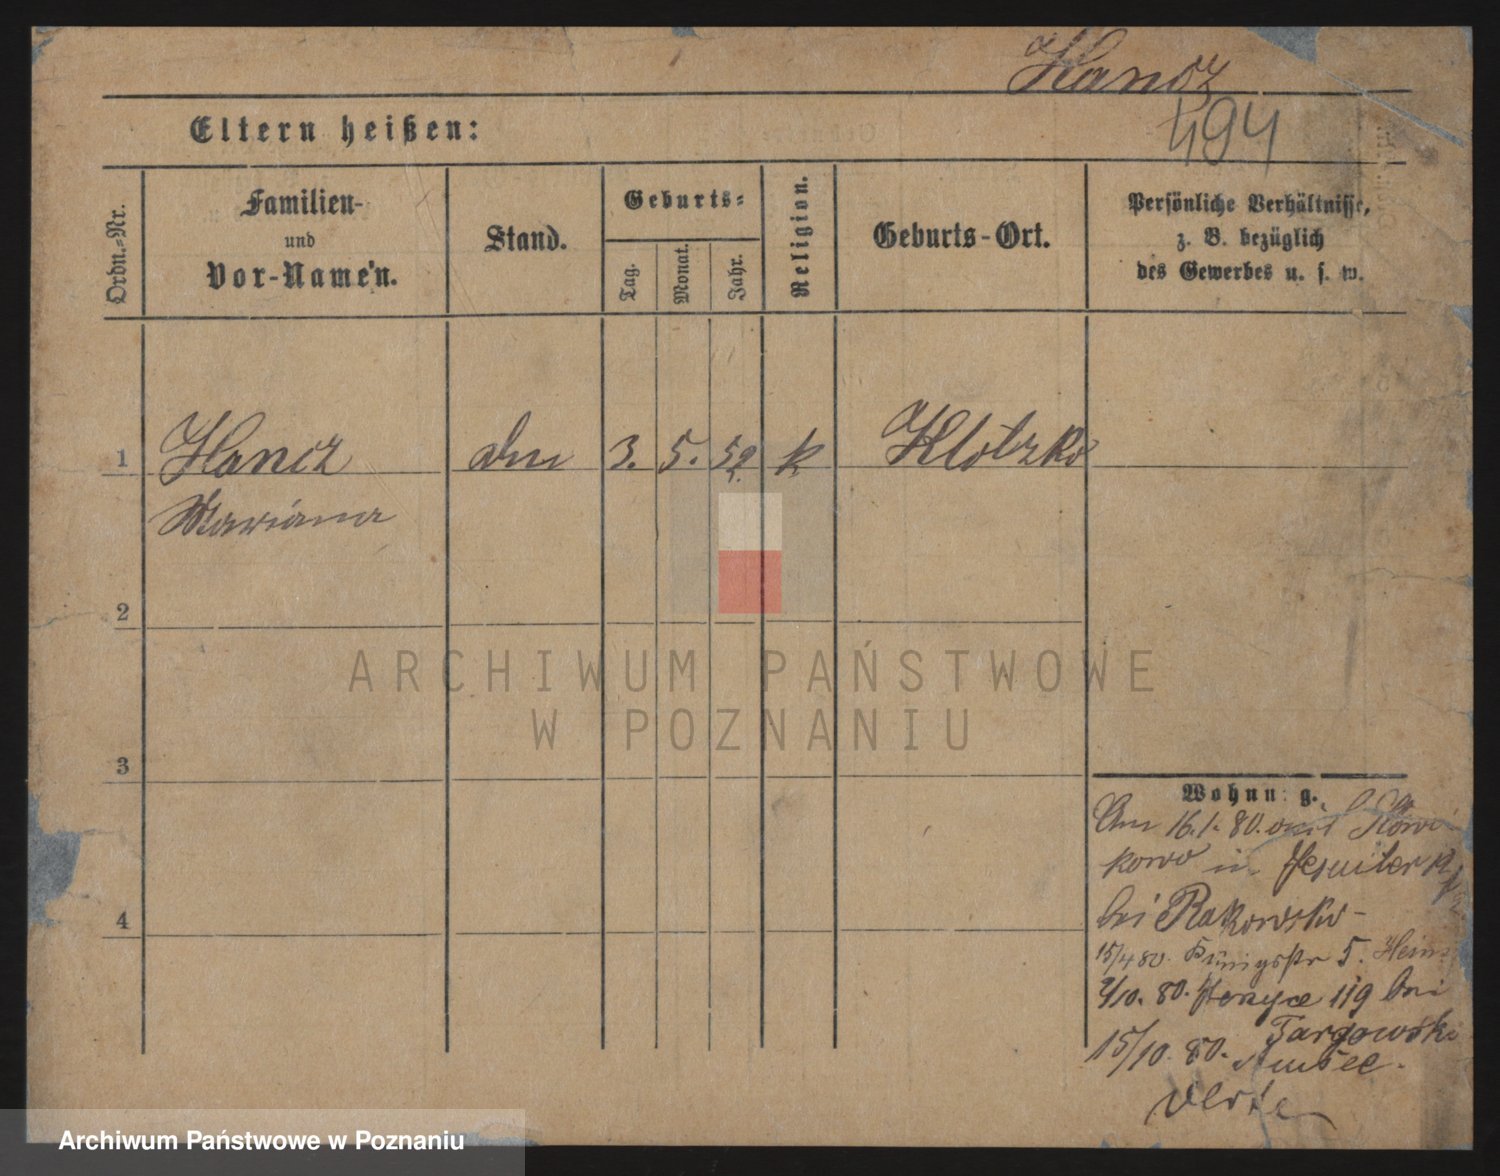 Hancz
494
Eltern heißen:
Ordn.-Nr.
Familien-
und
Vor-Namen.
Stand.
Geburts-
Tag.
Monat.
Jahr.
Religion.
Geburts-Ort.
Persönliche Verhältnisse,
z. B. bezüglich
des Gewerbes u. s. w.
1 Hancz 3. 5. 59. k Klotzko
Mariana
2
3
4
ARCHIWUM PAŃSTWOWE
W POZNANIU
Wohnung.
Am 16.1.80.
kowo in
bei Rakowski
15/4 80. Königsstr 5.
2/10. 80. 119 bei
Targowski
15/10. 80.
Archiwum Państwowe w Poznaniu